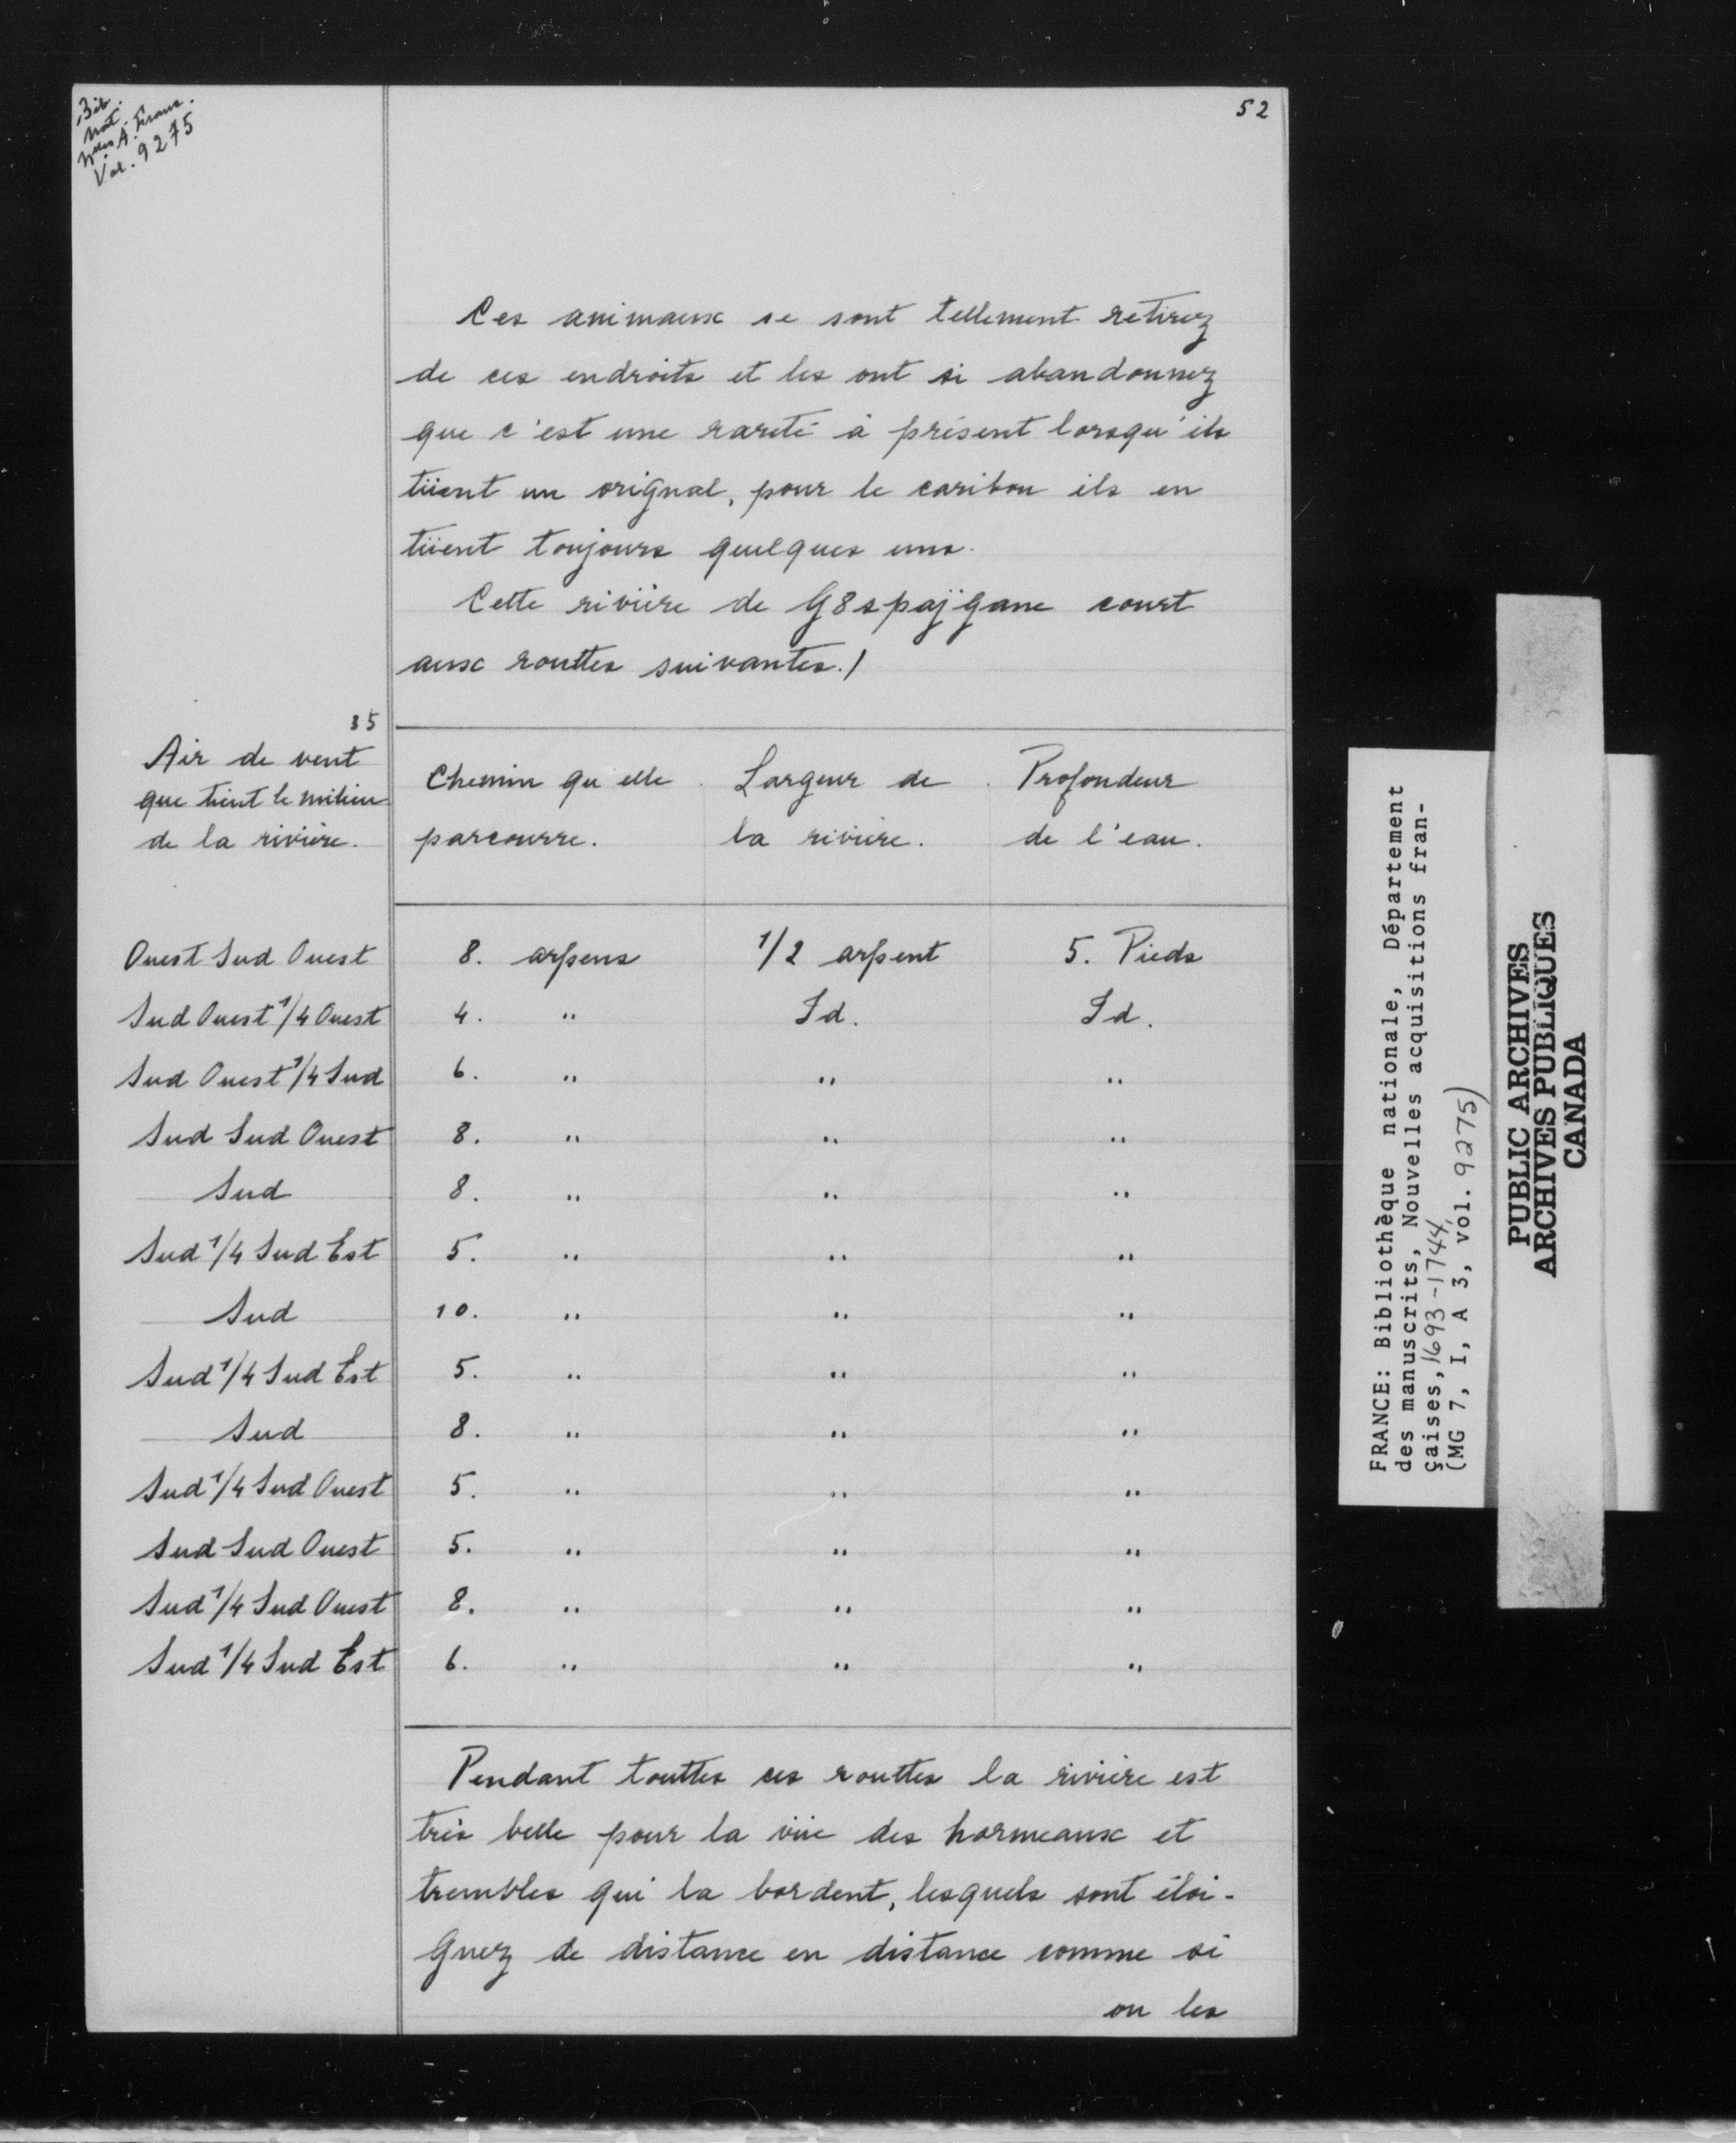 Bib.
Nat.
Nlles A. Franc.
Vol. 9275
52
Ces animaux se sont tellement retirez
de ces endroits et les ont si abandonnez
que c'est une rareté à présent lorsqu'ils
tüent un orignal, pour le caribou ils en
tüent toujours quelques uns.
Cette rivière de G8spajgane court
aux routtes suivantes./
35
Air de vent
que tient le milieu
de la rivière.
Chemin qu elle parcourre.
Largeur de la rivière.
Profondeur de l'eau.
Ouest Sud Ouest 8. arpens 1/2 arpent 5. Pieds
Sud Ouest 1/4 Ouest 4. " Id. Id.
Sud Ouest 1/4 Sud 6. " " "
Sud Sud Ouest 8. " " "
Sud 8. " " "
Sud 1/4 Sud Est 5. " " "
Sud 10. " " "
Sud 1/4 Sud Est 5. " " "
Sud 8. " " "
Sud 1/4 Sud Ouest 5. " " "
Sud Sud Ouest 5. " " "
Sud 1/4 Sud Ouest 8. " " "
Sud 1/4 Sud Est 6. " " "
Pendant touttes ces routtes la rivière est
très belle pour la vüe des hormeaux et
trembles qui la bordent, lesquels sont éloi-
gnez de distance en distance comme si
on les
FRANCE: Bibliothèque nationale, Département
des manuscrits, Nouvelles acquisitions fran-
çaises, 1693-1744
(MG 7, I, A 3, vol. 9275)
PUBLIC ARCHIVES
ARCHIVES PUBLIQUES
CANADA